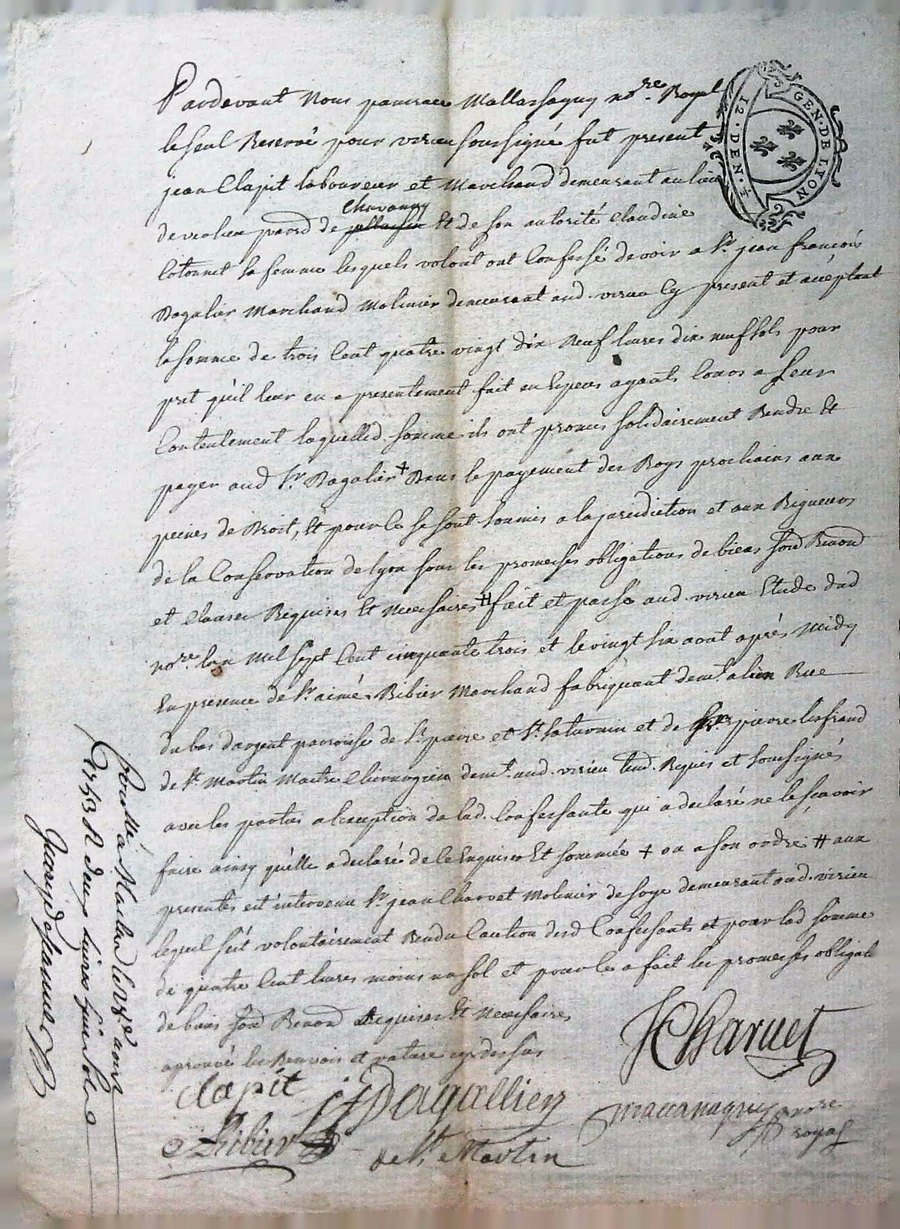 Pardevant Nous pancrace Mallassagny no.re Royal
le seul Reservé pour virieu soussigné fut present
jean Clapit laboureur et Marchand demeurant au lieu
de violieu parr.d de chavanay
Et de son autorité claudine
Cotonnet sa femme lesquels volont ont Confessé devoir a Sr. jean françois
Dagalier Marchand Molinier demeurant aud. virieu Cy present et acceptant
la somme de trois Cent quatre vingt dix Neuf livres dix neuf sols pour
pret qu'il leur en a presentement fait en Especes ayants Cours a Leur
Contentement laquelled. somme ils ont promis solidairement Rendre Et
payer aud Sr. Dagalier + Dans le payement des Roys prochains aux
peines de Droit, Et pour ce se sont soumis a la jurediction et aux Rigueurs
de la Conservation de lyon sous les promesses obligations de biens soud Renond
et Clauses Requises Et Necessaires # fait et passé aud. virieu Etude dud
no.re lan Mil Sept Cent cinquante trois et le vingt six aout après Midy
En presence de Sr. aimé Ribier Marchand fabriquant dem.t a lion Rue
du bas dargent parroisse de St. pierre et St. saturnin et de Sr. pierre
de St. Martin Maitre Chirurgien dem.t aud. virieu tem. Requis et soussignés
avec les parties a l'exception de lad. Confessante qui a declaré ne le sçavoir
faire ainsy qu'elle a declaré de ce Enquise Et sommée + ou a son ordre # aux
presentes est intervenu Sr. jean Charvet Molinier de soye demeurant aud. virieu
lequel s'est volontairement Rendu Caution desd Confessants et pour lad somme
de quatre Cent livres moins un sol et pour ce a fait les promesses obligat
de biens soud Renond Requises Et Necessaires
aprouvé les Renvois et rature cy dessus
JCharuet
clapit
JF Dagallier
Ribier
de St. Martin
no.re
royal
1753 R deux livres huit sols
GEN. DE LYON
12. DEN.